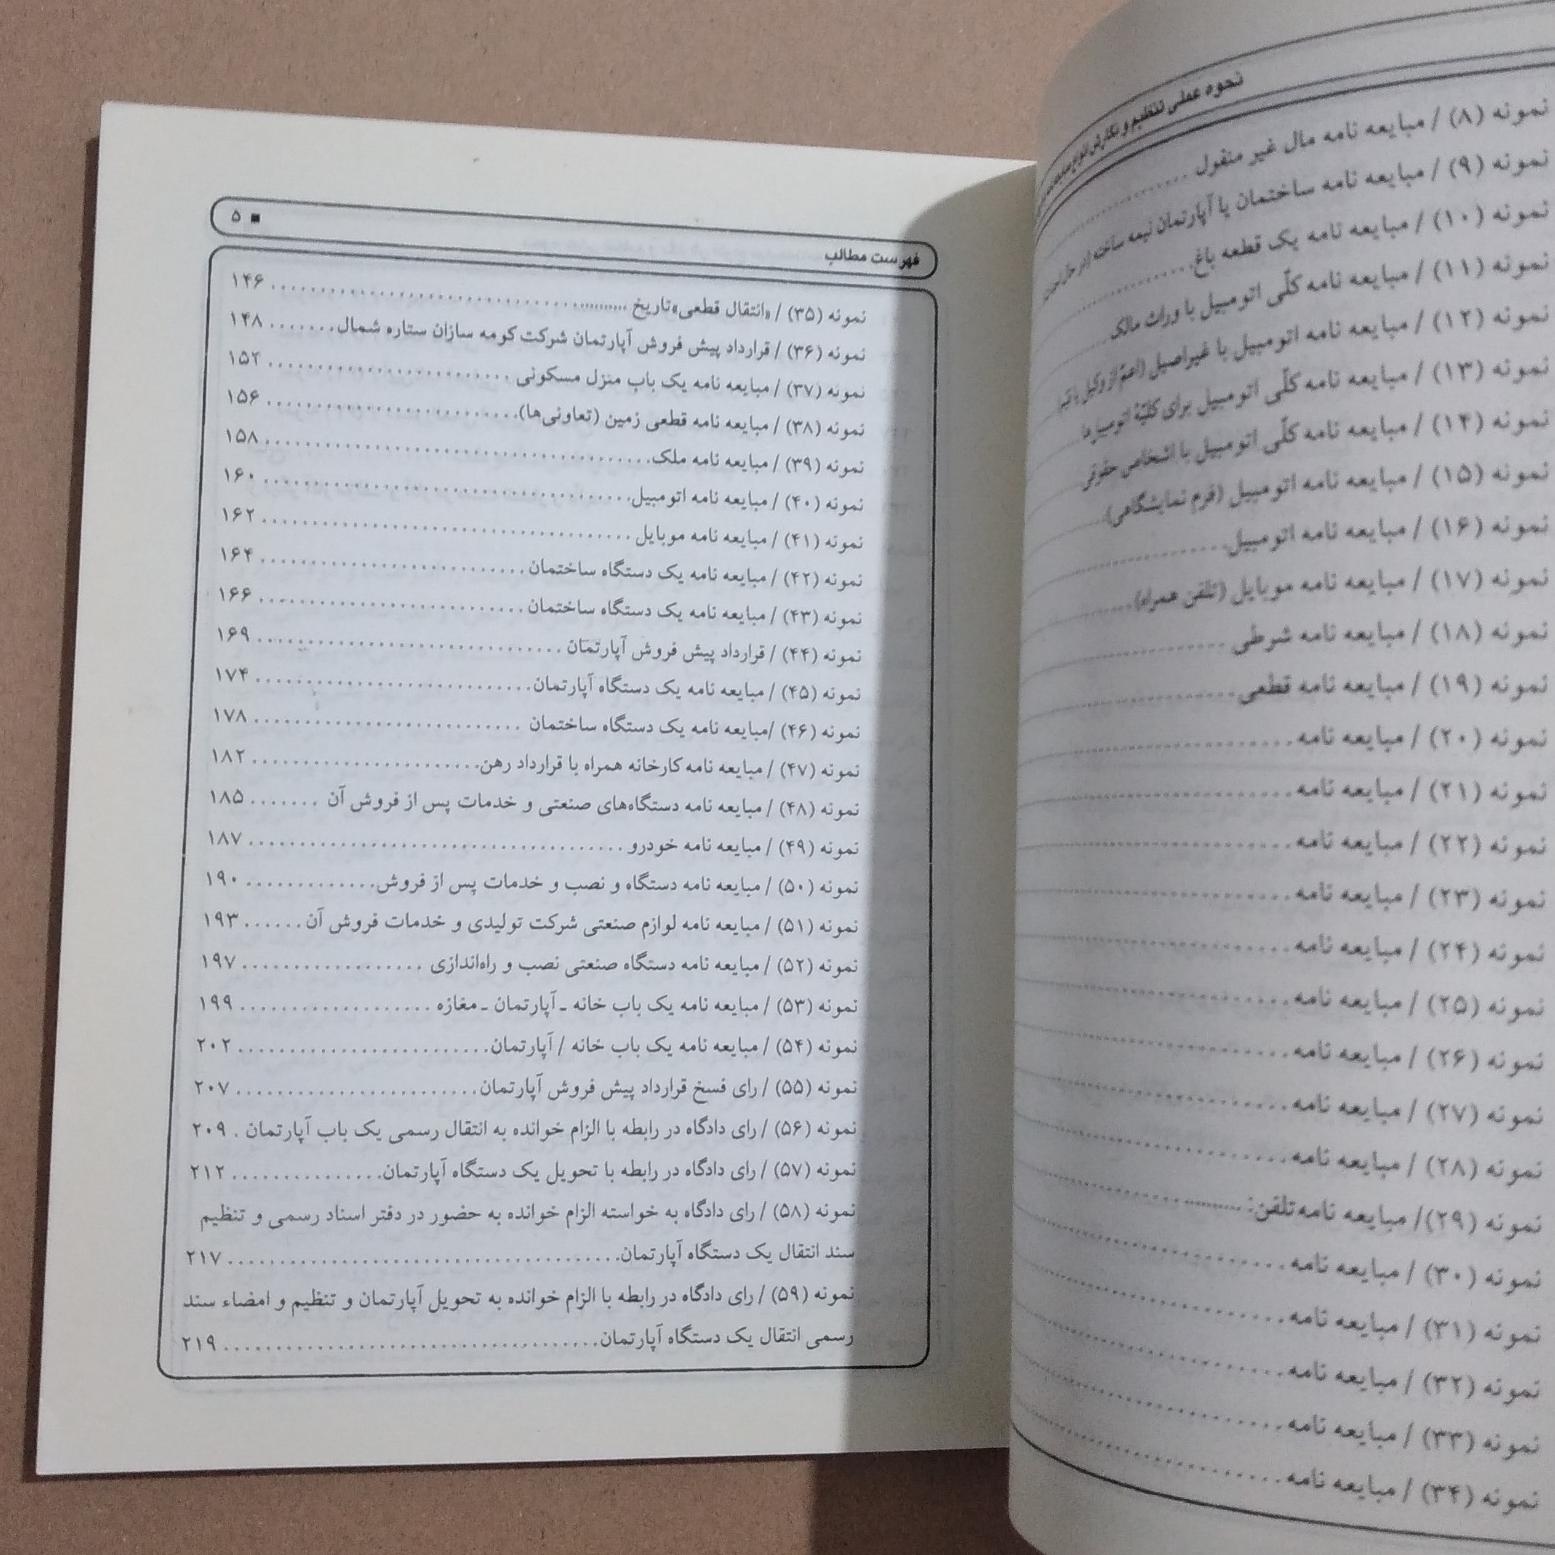 نحوه عملی تنظیم و نگارش انواع
نمونه (۸) / مبایعه نامه مال غیر منقول ..........
نمونه (۹) / مبایعه نامه ساختمان یا آپارتمان نیمه ساخته (در حال
نمونه (۱۰) / مبایعه نامه یک قطعه باغ..........
نمونه (۱۱) / مبایعه نامه کلّی اتومبیل با وراث مالک
نمونه (۱۲) / مبایعه نامه اتومبیل با غیراصیل (اعمّ از وکیل یا
نمونه (۱۳) / مبایعه نامه کلّی اتومبیل برای کلیّهٔ اتومبیل‌ها
نمونه (۱۴) / مبایعه نامه کلّی اتومبیل با اشخاص حقوقی
نمونه (۱۵) / مبایعه نامه اتومبیل (فرم نمایشگاهی)
نمونه (۱۶) / مبایعه نامه اتومبیل..........
نمونه (۱۷) / مبایعه نامه موبایل (تلفن همراه)..........
نمونه (۱۸) / مبایعه نامه شرطی ..........
نمونه (۱۹) / مبایعه نامه قطعی..........
نمونه (۲۰) / مبایعه نامه..........
نمونه (۲۱) / مبایعه نامه..........
نمونه (۲۲) / مبایعه نامه..........
نمونه (۲۳) / مبایعه نامه..........
نمونه (۲۴) / مبایعه نامه..........
نمونه (۲۵) / مبایعه نامه..........
نمونه (۲۶) / مبایعه نامه..........
نمونه (۲۷) / مبایعه نامه..........
نمونه (۲۸) / مبایعه نامه..........
نمونه (۲۹)/ مبایعه نامه تلفن: ..........
نمونه (۳۰) / مبایعه نامه..........
نمونه (۳۱) / مبایعه نامه..........
نمونه (۳۲) / مبایعه نامه..........
نمونه (۳۳) / مبایعه نامه..........
نمونه (۳۴) / مبایعه نامه..........
فهرست مطالب ■ ۵
نمونه (۳۵) / «انتقال قطعی»تاریخ .......... ۱۴۶
نمونه (۳۶) / قرارداد پیش فروش آپارتمان شرکت کومه سازان ستاره شمال....... ۱۴۸
نمونه (۳۷) / مبایعه نامه یک باب منزل مسکونی .......... ۱۵۲
نمونه (۳۸) / مبایعه نامه قطعی زمین (تعاونی‌ها).......... ۱۵۶
نمونه (۳۹) / مبایعه نامه ملک.......... ۱۵۸
نمونه (۴۰) / مبایعه نامه اتومبیل.......... ۱۶۰
نمونه (۴۱) / مبایعه نامه موبایل .......... ۱۶۲
نمونه (۴۲) / مبایعه نامه یک دستگاه ساختمان.......... ۱۶۴
نمونه (۴۳) / مبایعه نامه یک دستگاه ساختمان.......... ۱۶۶
نمونه (۴۴) / قرارداد پیش فروش آپارتمان.......... ۱۶۹
نمونه (۴۵) / مبایعه نامه یک دستگاه آپارتمان.......... ۱۷۴
نمونه (۴۶) /مبایعه نامه یک دستگاه ساختمان .......... ۱۷۸
نمونه (۴۷) / مبایعه نامه کارخانه همراه با قرارداد رهن.......... ۱۸۲
نمونه (۴۸) / مبایعه نامه دستگاه‌های صنعتی و خدمات پس از فروش آن ....... ۱۸۵
نمونه (۴۹) / مبایعه نامه خودرو.......... ۱۸۷
نمونه (۵۰) / مبایعه نامه دستگاه و نصب و خدمات پس از فروش.......... ۱۹۰
نمونه (۵۱) / مبایعه نامه لوازم صنعتی شرکت تولیدی و خدمات فروش آن ...... ۱۹۳
نمونه (۵۲) / مبایعه نامه دستگاه صنعتی نصب و راه‌اندازی .......... ۱۹۷
نمونه (۵۳) / مبایعه نامه یک باب خانه ـ آپارتمان ـ مغازه .......... ۱۹۹
نمونه (۵۴) / مبایعه نامه یک باب خانه / آپارتمان.......... ۲۰۲
نمونه (۵۵) / رای فسخ قرارداد پیش فروش آپارتمان.......... ۲۰۷
نمونه (۵۶) / رای دادگاه در رابطه با الزام خوانده به انتقال رسمی یک باب آپارتمان . ۲۰۹
نمونه (۵۷) / رای دادگاه در رابطه با تحویل یک دستگاه آپارتمان.......... ۲۱۲
نمونه (۵۸) / رای دادگاه به خواسته الزام خوانده به حضور در دفتر اسناد رسمی و تنظیم
سند انتقال یک دستگاه آپارتمان.......... ۲۱۷
نمونه (۵۹) / رای دادگاه در رابطه با الزام خوانده به تحویل آپارتمان و تنظیم و امضاء سند
رسمی انتقال یک دستگاه آپارتمان.......... ۲۱۹